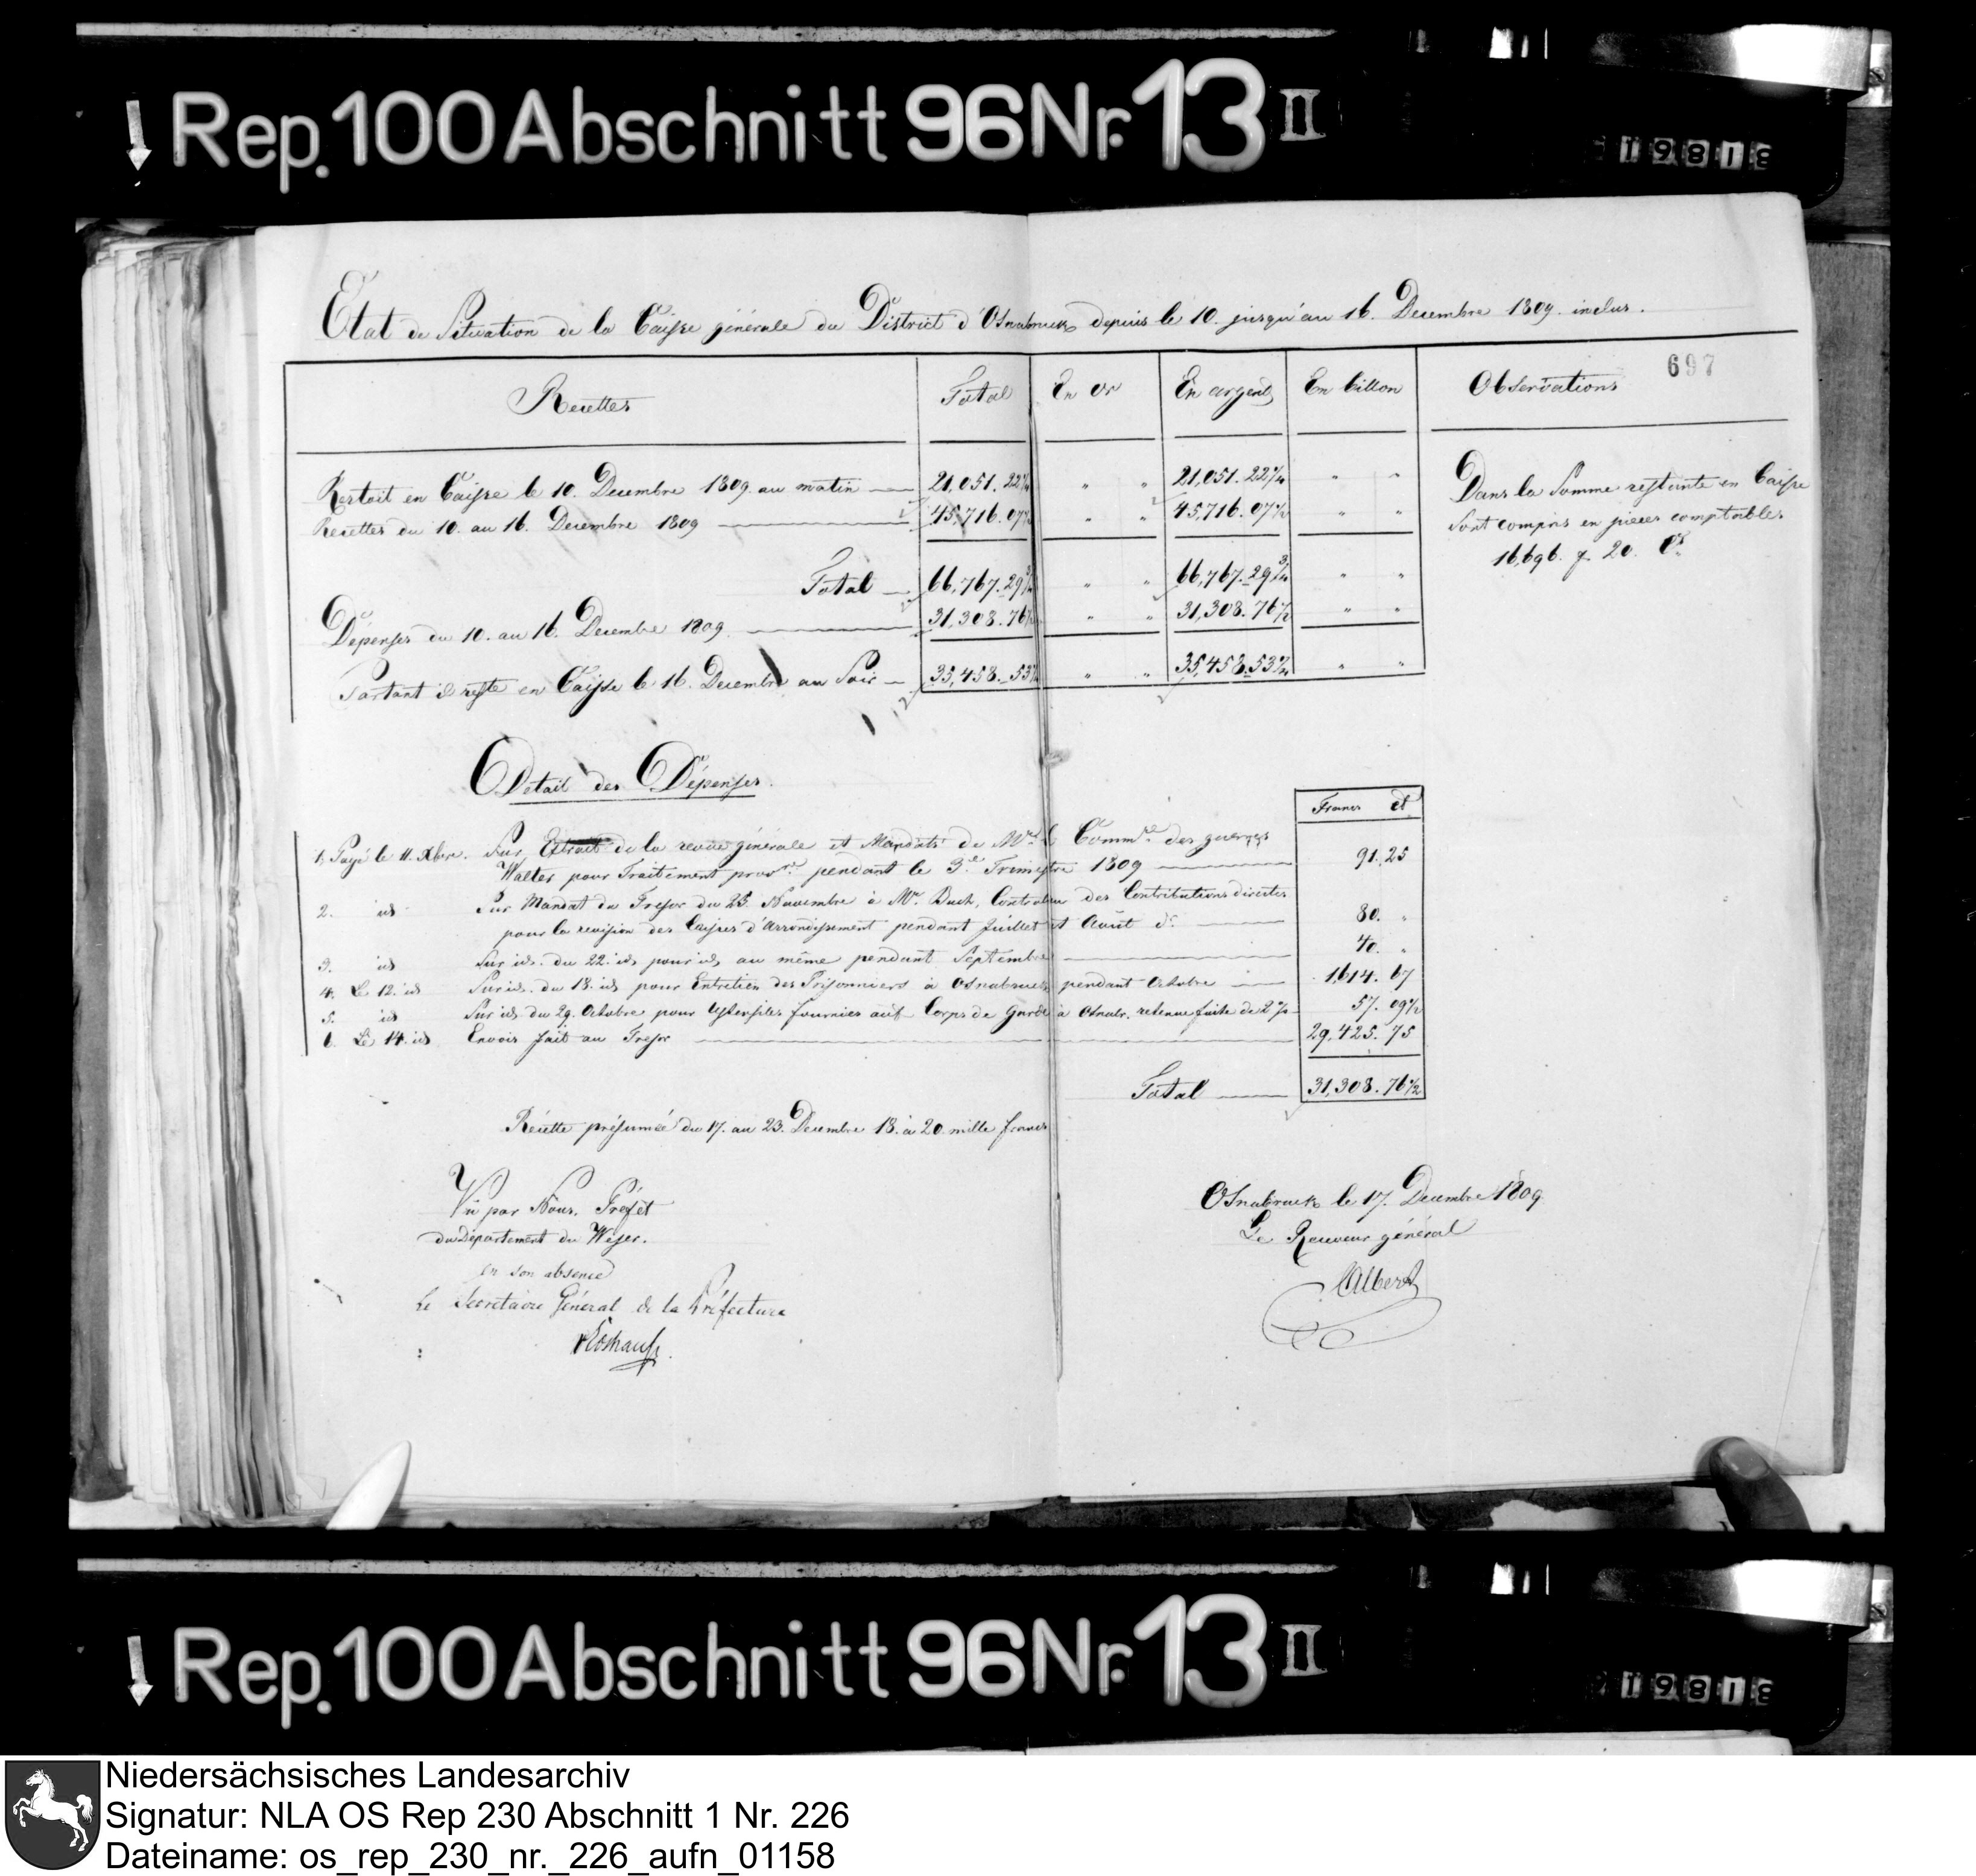 Rep. 100 Abschnitt 96 Nr. 13 II
19813
Etat de Situation de la Caisse générale du District d'Osnabruck depuis le 10. jusqu'au 16. Decembre 1809. inclus.
697
Recettes Total En or En argent En billon Observations
Restoit en Caisse le 10. Decembre 1809. au matin 21,051. 22 1/4 " " 21,051. 22 1/4 " "
Recettes du 10. au 16. Decembre 1809 45,716. 07 1/2 " " 45,716. 07 1/2 " "
Total 66,767. 29 3/4 " " 66,767. 29 3/4 " "
Dépenses du 10. au 16. Decembre 1809. 31,308. 76 1/2 " " 31,308. 76 1/2 " "
Partant il reste en Caisse le 16. Decembre au Soir 35,458. 53 1/4 " " 35,458. 53 1/4 " "
Dans la Somme restante en Caisse
sont compris en pieces comptables
16,696. f. 20. Cs.
Detail des Dépenses.
Francs Cs
1. Payé le 11. Xbre. Sur Extrait de la revue générale et Mandats de Mr. le Commre. des guerres
Walter pour Traitement provre. pendant le 3e. Trimestre 1809 91. 25
2. id Sur Mandat du Tresor du 23. Novembre à Mr. Buch, Controleur des Contributions directes
pour la revision des Caisses d'Arrondissement pendant Juillet et Août dr. 80. "
3. id Sur id. du 22. id pour id, au même pendant Septembre 40. "
4. Le 12. id Sur id. du 18. id pour Entretien des Prisonniers à Osnabruck pendant Octobre 1,614. 67
5. id Sur id du 29. Octobre pour Ustensiles fournies aux Corps de Garde à Osnabr. retenue faite de 2 % 57. 09 1/2
6. Le 14. id Envois fait au Tresor 29,425. 75
Total 31,308. 76 1/2
Recette présumée du 17. au 23. Decembre 18. à 20. mille francs
Vu par Nous, Préfet
du Département du Weser.
en son absence
Le Secretaire Général de la Préfecture
Osnabruck le 17. Decembre 1809.
Le Receveur général
Albert
Rep. 100 Abschnitt 96 Nr. 13 II
19813
Niedersächsisches Landesarchiv
Signatur: NLA OS Rep 230 Abschnitt 1 Nr. 226
Dateiname: os_rep_230_nr._226_aufn_01158